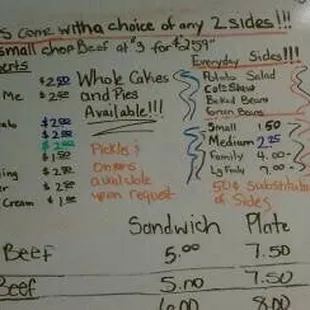 S come with a choice of any 2 sides!!!
small chop Beef at "3 for $2.59"
erts
Everyday Sides!!!
$2.50
Whole Cakes
and Pies
Available!!!
Me
Potato Salad
Cole Slaw
Baked Beans
Green Beans
$2.00
$2.00
$1.50
Small 1.50
Medium 2.25
Family 4.00
Lg Fmly 7.00
Pickles &
onions
available
upon request
ing
er
Cream
50¢ Substitute
of Sides
Sandwich Plate
Beef 5.00 7.50
Beef 5.00 7.50
6.00 8.00